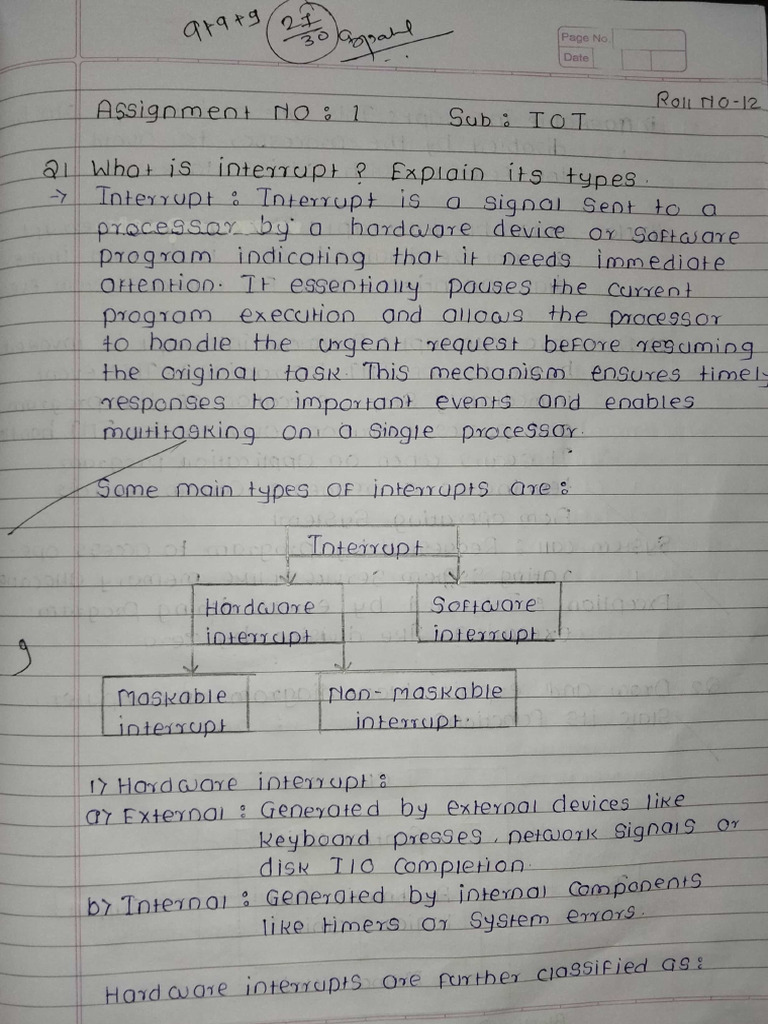 9+9+9 27/30
Page No.
Date
Roll No-12
Assignment NO : 1 Sub : IOT
Q1 What is interrupt? Explain its types.
→ Interrupt : Interrupt is a signal sent to a
processor by a hardware device or software
program indicating that it needs immediate
attention. It essentially pauses the current
program execution and allows the processor
to handle the urgent request before resuming
the original task. This mechanism ensures timely
responses to important events and enables
multitasking on a single processor.
Some main types of interrupts are :
Interrupt
Hardware interrupt Software interrupt
9
Maskable interrupt Non-maskable interrupt.
1) Hardware interrupt :
a) External : Generated by external devices like
keyboard presses, network signals or
disk I/O completion.
b) Internal : Generated by internal components
like timers or system errors.
Hardware interrupts are further classified as :